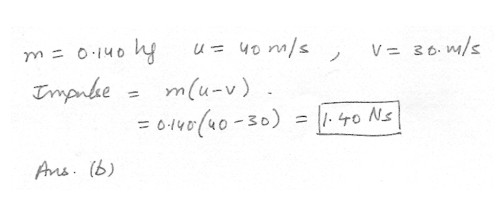 m = 0.140 kg u = 40 m/s , v = 30. m/s
Impulse = m(u-v) .
= 0.140(40-30) = 1.40 Ns
Ans. (b)